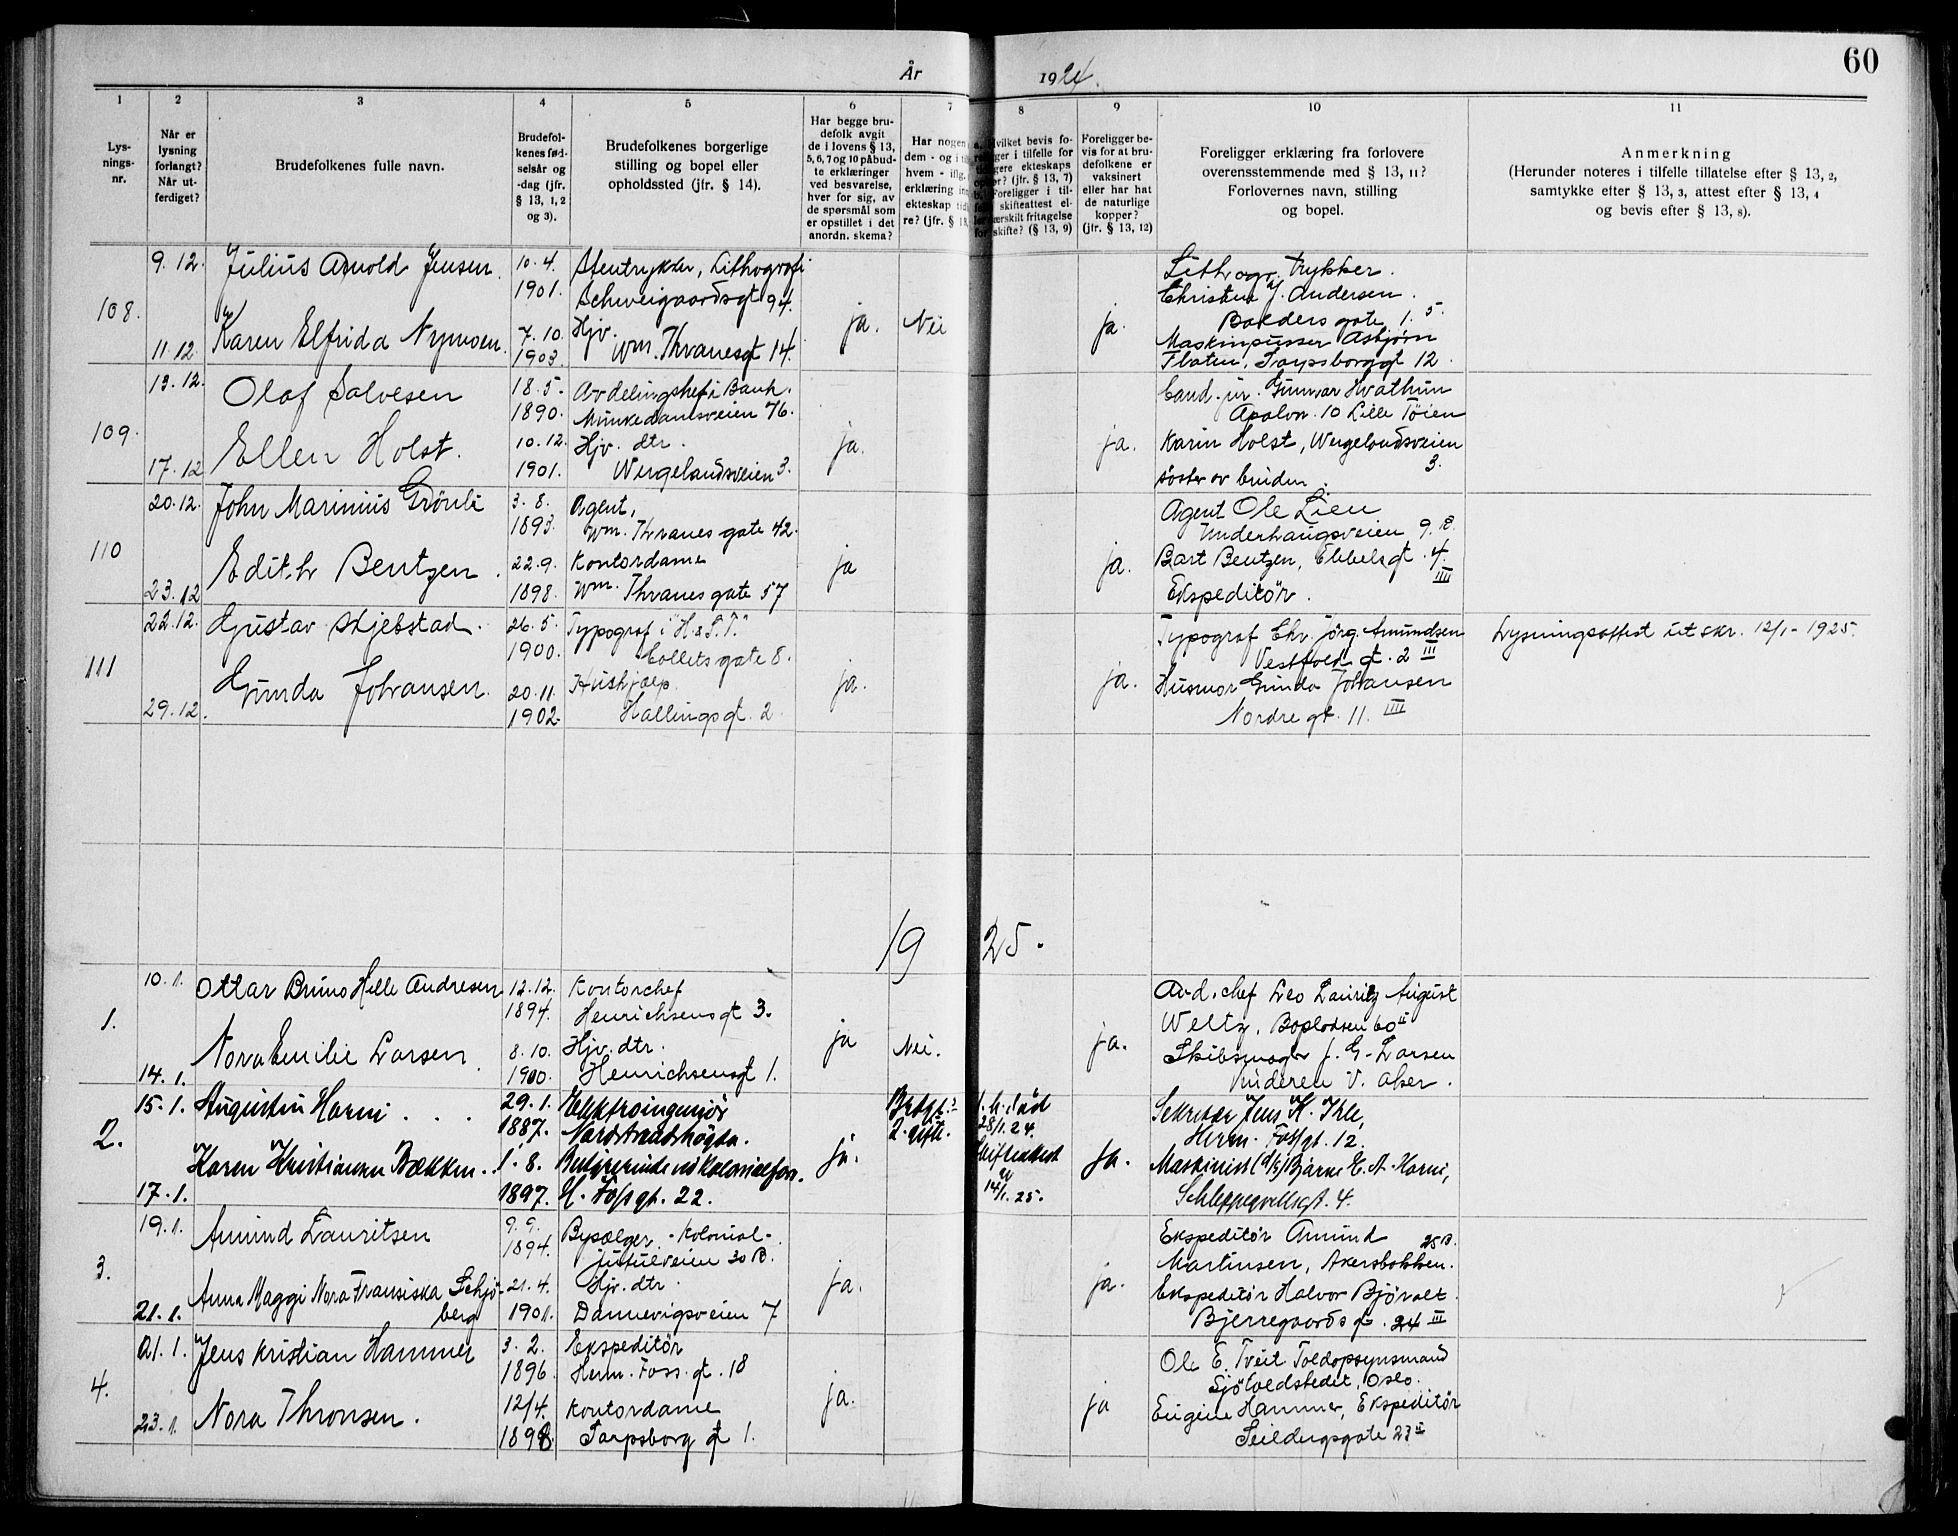 60
År 1924.
1 2 3 4 5 6 7 8 9 10 11
Lys-
nings-
nr.
Når er
lysning
forlangt?
Når ut-
ferdiget?
Brudefolkenes fulle navn.
Brudefol-
kenes fød-
selsår og
-dag (jfr.
§ 13, 1, 2
og 3).
Brudefolkenes borgerlige
stilling og bopel eller
opholdssted (jfr. § 14).
Har begge bru-
defolk avgit
de i lovens § 13,
5, 6, 7 og 10 påbud-
te erklæringer
ved besvarelse,
hver for sig, av
de spørsmål som
er opstillet i det
anordn. skema?
Har nogen
dem - og i
hvem - iflg.
erklæring
ekteskap
re? (jfr. § 13,
Hvilket bevis fo-
i tilfelle for
ekteskaps
? (jfr. § 13, 7)
Foreligger i til-
skifteattest el-
særskilt fritagelse
skifte? (§ 13, 9)
Foreligger be-
vis for at bru-
defolkene er
vaksinert
eller har hat
de naturlige
kopper?
(jfr. § 13, 12)
Foreligger erklæring fra forlovere
overensstemmende med § 13, 11?
Forlovernes navn, stilling
og bopel.
Anmerkning
(Herunder noteres i tilfelle tillatelse efter § 13, 2,
samtykke efter § 13, 3, attest efter § 13, 4
og bevis efter § 13, 8).
108.
9.12.
11.12.
Julius Arnold Jensen.
Karen Elfrida Nymoen.
10.4.
1901.
7.10.
1903.
Stentrykker, Lithografi
Schweigaardsgt 94.
Hjv.
Wm. Thranesgt 14.
ja. Nei ja.
Lithogr. trykker.
Christian J. Andersen.
Baldersgate 1. 5.
Maskinpusser Asbjørn
Flaten, Sarpsborggt 12.
109.
13.12.
17.12
Olaf Salvesen
Ellen Holst.
18.5.
1890.
10.12.
1901.
Avdelingschef i Bank.
Munkedamsveien 76.
Hjv. dtr.
Wergelandsveien 3.
ja. ja.
Cand. jur. Gunnar Hvathum
10 Lille Töien
Karin Holst, Wergelandsveien
3.
söster av bruden.
110
20.12.
23.12
John Marinius Grönli
Edith Bentzen.
3.8.
1893.
22.9.
1898.
Agent,
Wm. Thranes gate 42.
Kontordame
Wm. Thranes gate 57
ja ja.
Agent Ole Lien
Underhaugsveien 9. B.
Bart Bentzen, Ebbelsgt. 4.
IIII
Ekspeditör.
111
22.12.
29.12.
Gustav Skjebstad.
Gunda Johansen.
26.5.
1900.
20.11.
1902.
Typograf i "H. & S. T."
Colletsgate 8.
Hushjælp.
Hallingsgt. 2.
ja. ja.
Typograf Chr. Jörg. Amundsen
Vestfold gt. 2 III
Husmor Gunda Johansen
Nordre gt. 11. IIII
Lysningsattest utskr. 12/1-1925.
1925.
1.
10.1.
14.1.
Ottar Bruno Hille Andresen
Nora Emilie Larsen.
12.12.
1894.
8.10.
1900.
Kontorchef
Henrichsensgt 3.
Hjv. dtr.
Henrichsensgt 1.
ja Nei. ja.
Avd. chef Leo Lauritz August
Weltz, 60 II
J. G. Larsen
Vinderen V. Aker.
2.
15.1.
17.1.
Augustin Horni . . .
Karen Kristiansen Bækken.
29.1.
1887.
1.8.
1897.
Elektroingeniör
Nordstrandshögda.
Bestyrerinde ved Kolonialforr.
H. Fossgt. 22.
ja.
2. gift.
28/1.24.
Skifteattest
av
14/1.25.
ja.
Sekretær Jens H. Ihle,
Herm. Fossgt. 12.
Maskinist (d/s) Bjarne E. A. Horni,
Schleppegrellsgt. 4.
3.
19.1.
21.1.
Amund Lauritsen
Anna Maggi Nora Fransiska Schjö-
berg
9.9.
1894.
21.4.
1901.
Bysælger - Kolonial-
Jutulveien 30 B.
Hjv. dtr.
Dannevigsveien 7
ja. ja.
Ekspeditör Amund
Martinsen, Akersbakken. 25 B.
Ekspeditör Halvor Bjövalt.
Bjerregaardsgt. 24 III
4.
21.1.
23.1.
Jens Kristian Hammer
Nora Thronsen.
3.2.
1896.
12/4.
1898.
Ekspeditör
Herm. Foss. gt. 18
Kontordame
Sarpsborg gt 1.
ja. ja
Ole E. Tveit Toldopsynsmand
Sjötoldstedet, Oslo.
Eugene Hammer, Ekspeditör
Seildugsgate 27 II